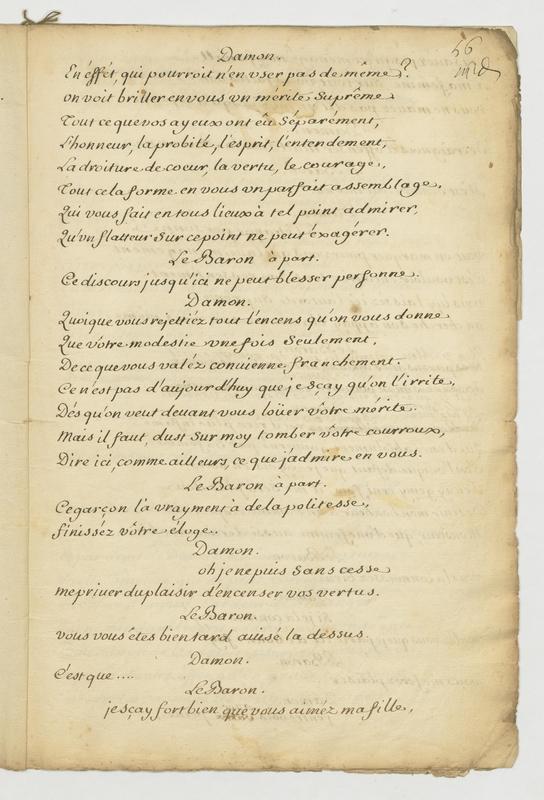 56
Damon.
En éffét, qui pourroit n'en vser pas de même?
on voit briller en vous vn mérite Suprême
Tout ce que vos ayeux ont eû Séparément,
L'honneur, la probité, l'esprit, l'entendement,
La droiture de coeur, la vertu, le courage,
Tout cela forme en vous vn parfait assemblage,
Qui vous fait en tous lieux à tel point admirer,
Qu'vn flatteur Sur ce point ne peut éxagérer.
Le Baron à part.
Ce discours jusqu'ici ne peut blesser personne.
Damon.
Quoique vous rejettiéz tout l'encens qu'on vous donne
Que vôtre modestie vne fois Seulement,
De ce que vous valéz conuienne franchement.
Ce n'est pas d'aujourd'huy que je sçay qu'on l'irrite,
Dés qu'on veut deuant vous loüer vôtre mérite.
Mais il faut, dust Sur moy tomber vôtre courroux,
Dire ici, comme ailleurs, ce que j'admire en vous.
Le Baron à part.
Ce garçon là vrayment à de la politesse,
finisséz vôtre éloge.
Damon.
oh je ne puis Sans cesse
me priuer du plaisir d'encenser vos vertus.
Le Baron.
vous vous êtes bien tard auisé la dessus.
Damon.
C'est que ....
Le Baron.
je sçay fort bien que vous aiméz ma fille,